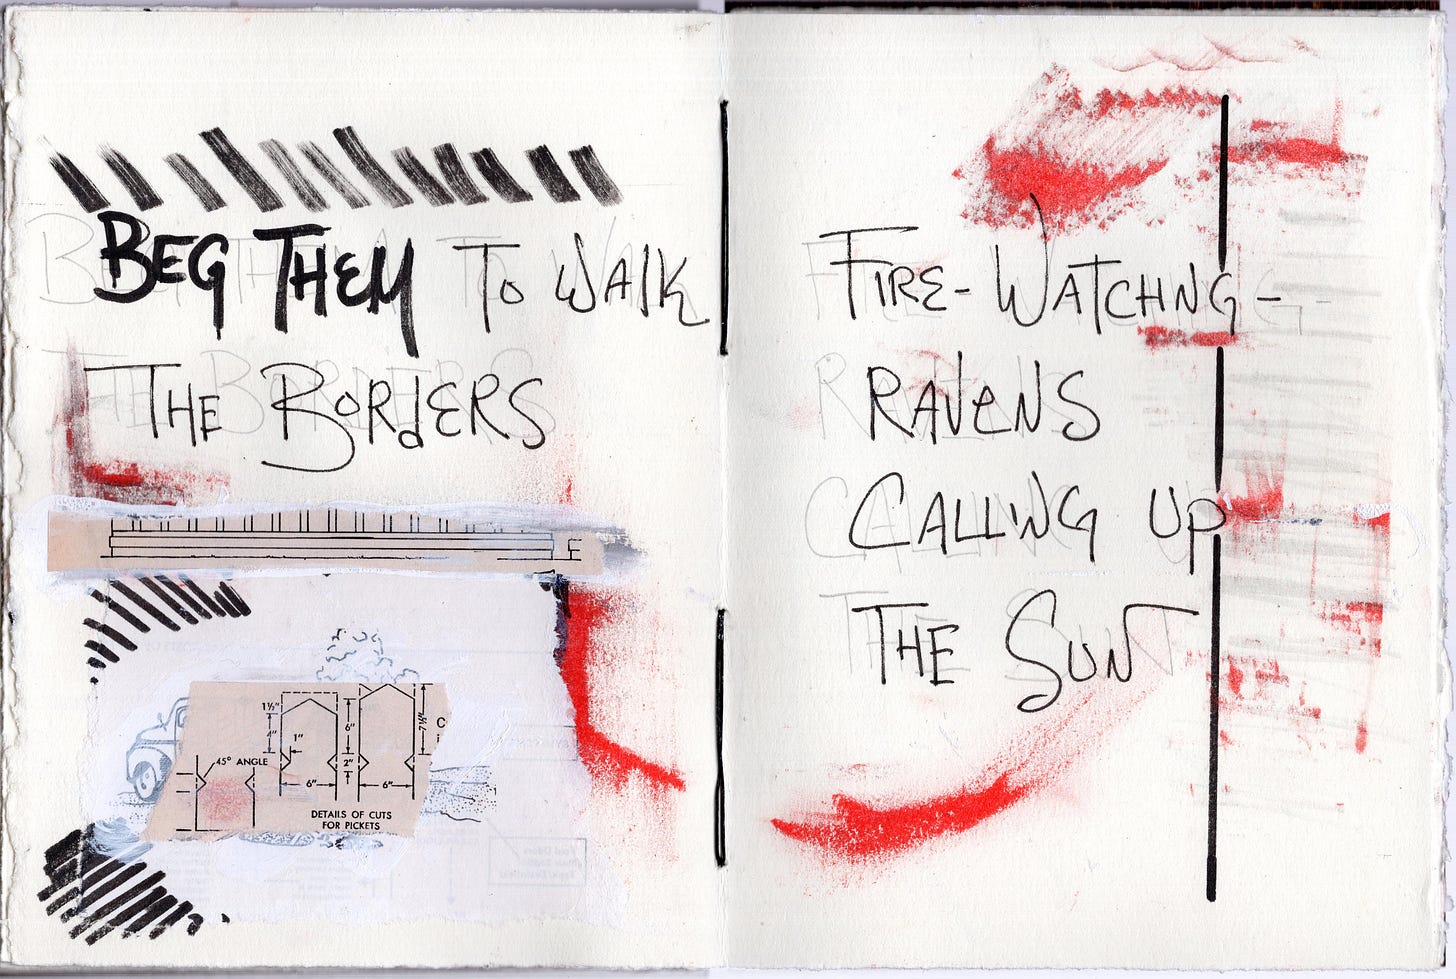 BEG THEM TO WALK
THE BORDERS
1½"
4"
1"
6"
7½"
C
i
45° ANGLE
2"
6"
6"
DETAILS OF CUTS
FOR PICKETS
FIRE-WATCHNG-
RAVENS
CALLING UP
THE SUN